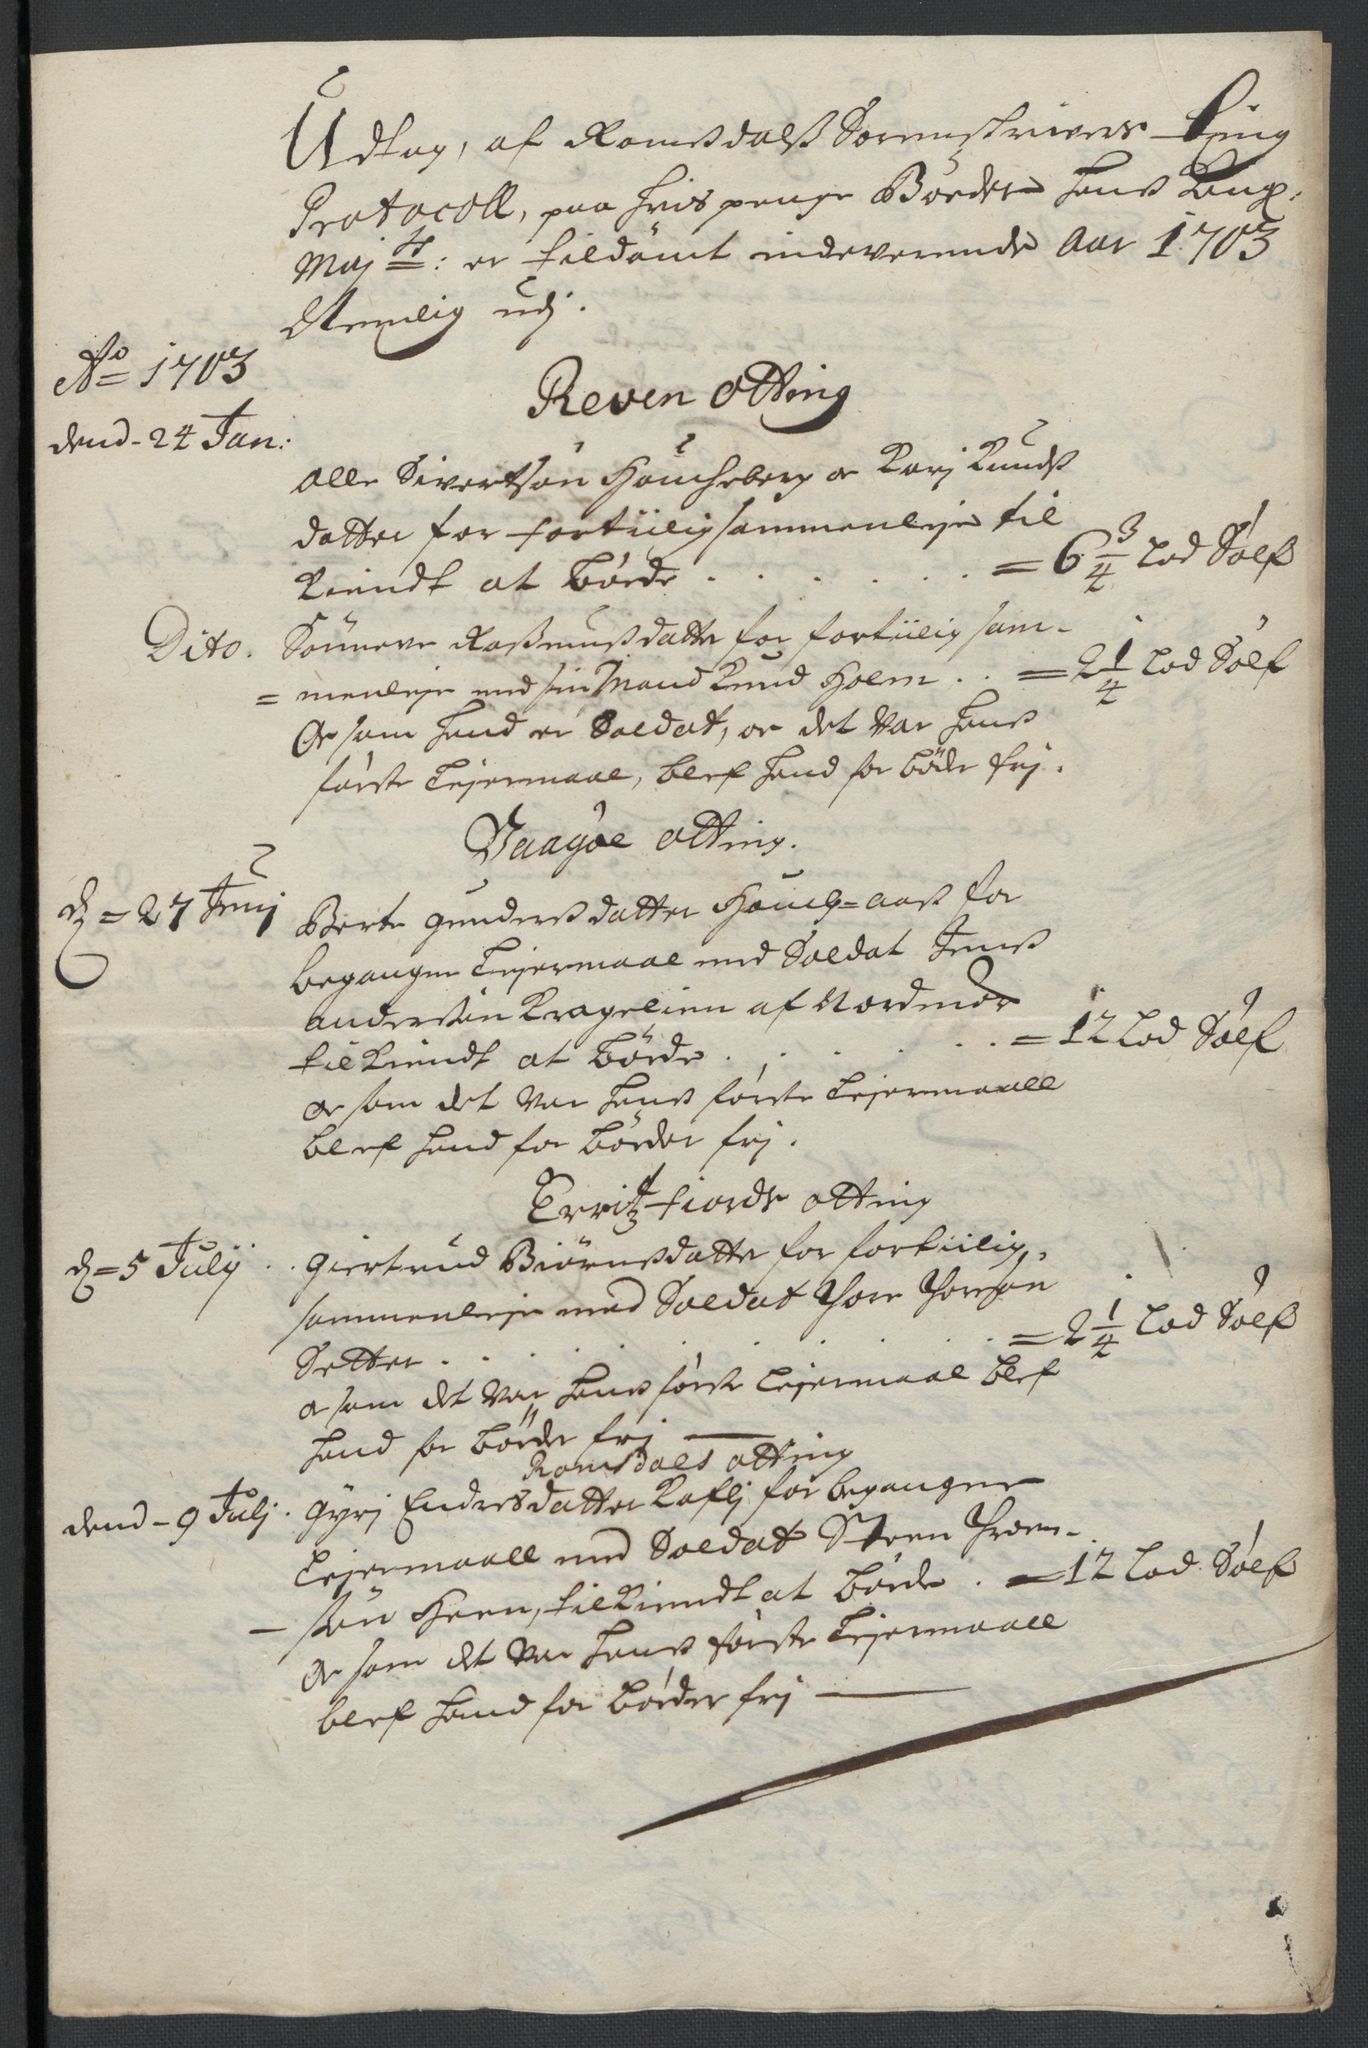 Udtog, af Romsdalß Sorenskrivers Ting
Protocoll, paa hvis penge Bøeder hans Kong.
Maj tt: er tildømt indeverende Aar 1703
Nemlig udj.
Ao 1703
Reven otting
dend - 24 Jan:
Olle Sivertsøn Houcheberg oc Karj Knuds
datter for fortiilig sammenleje til
Kiendt at bøede . . . . . . = 6 3/4 Lod Sølf
Dito. Sønneve Rasmusdatter for fortiilig sam-
= menleje med sin Mand Knud Holm . . = 2 1/4 Lod Sølf
Oc som hand er Soldat, oc det var hans
første Lejermaal, blef hand for bøde frj.
Vaagøe otting.
d = 27 Junj Berte Gundersdatter Houch=aas for
begangen Lejermaal med Soldat Jens
Andersøn Kragelien af Nordmør
tilkiendt at bøede . . . . . . = 12 Lod Sølf
oc som det var hans første Lejermaall
blef hand for bøeder frj.
Erritzfiords otting
d = 5 Julij . . Giertrud Biørnsdatter for fortiilig
sammenleje med Soldat Thore Thoresøn
Setter . . . . . . = 2 1/4 Lod Sølf
oc som det var hans første Lejermaal blef
hand for bøede frj
Romsdals otting
dend - 9 Julj. Gyrj Endresdatter Kaflj for begangen
Lejermaall med Soldat Steen Troen-
- søn Heen, tilkiendt at bøede . = 12 Lod Sølf
Oc som det var hans første Lejermaall
blef hand for bøeder frj